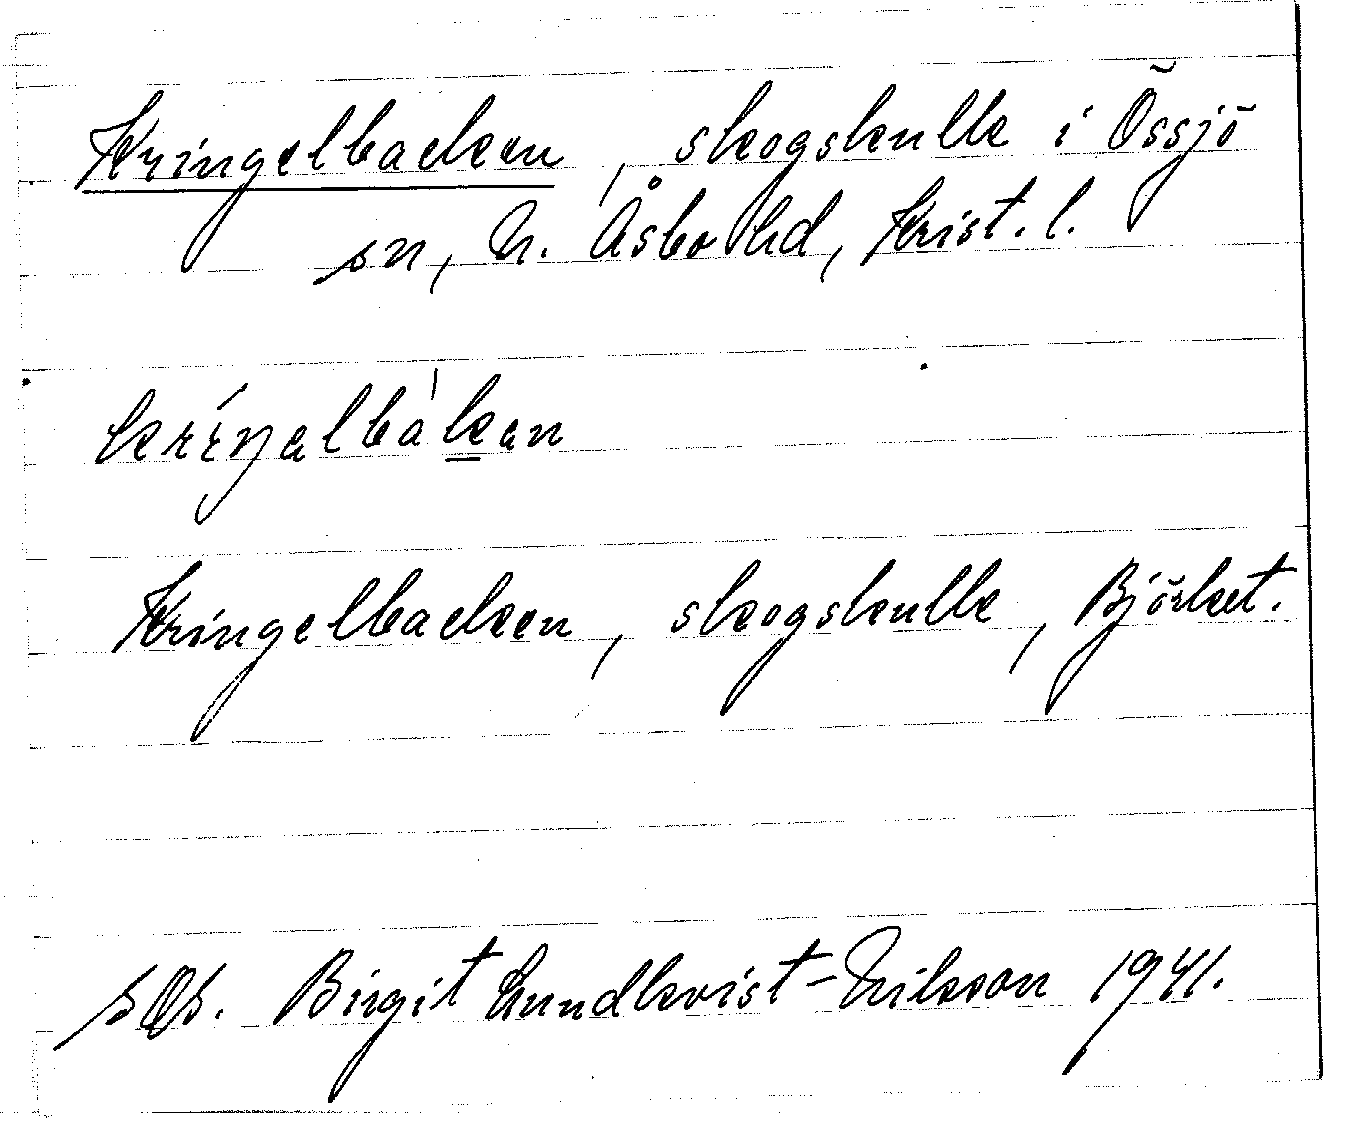 Kringelbacken, skogskulle i Össjö
sn, N. Åsbo hd, Krist. l.
kríŋəlbàkən
Kringelbacken, skogskulle, Björket.
Birgit Lundkvist-Nilsson 1941.